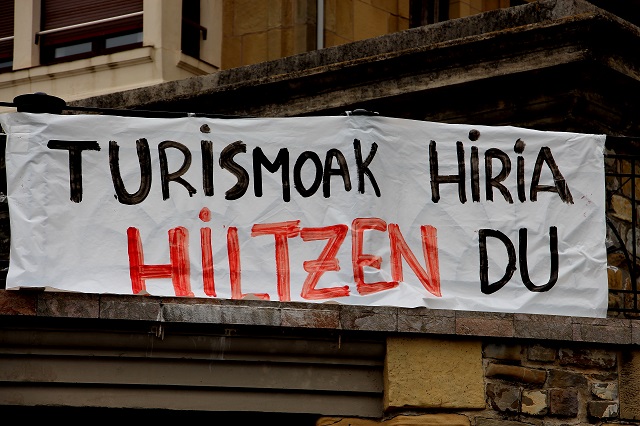 TURISMOAK HIRIA
HILTZEN DU